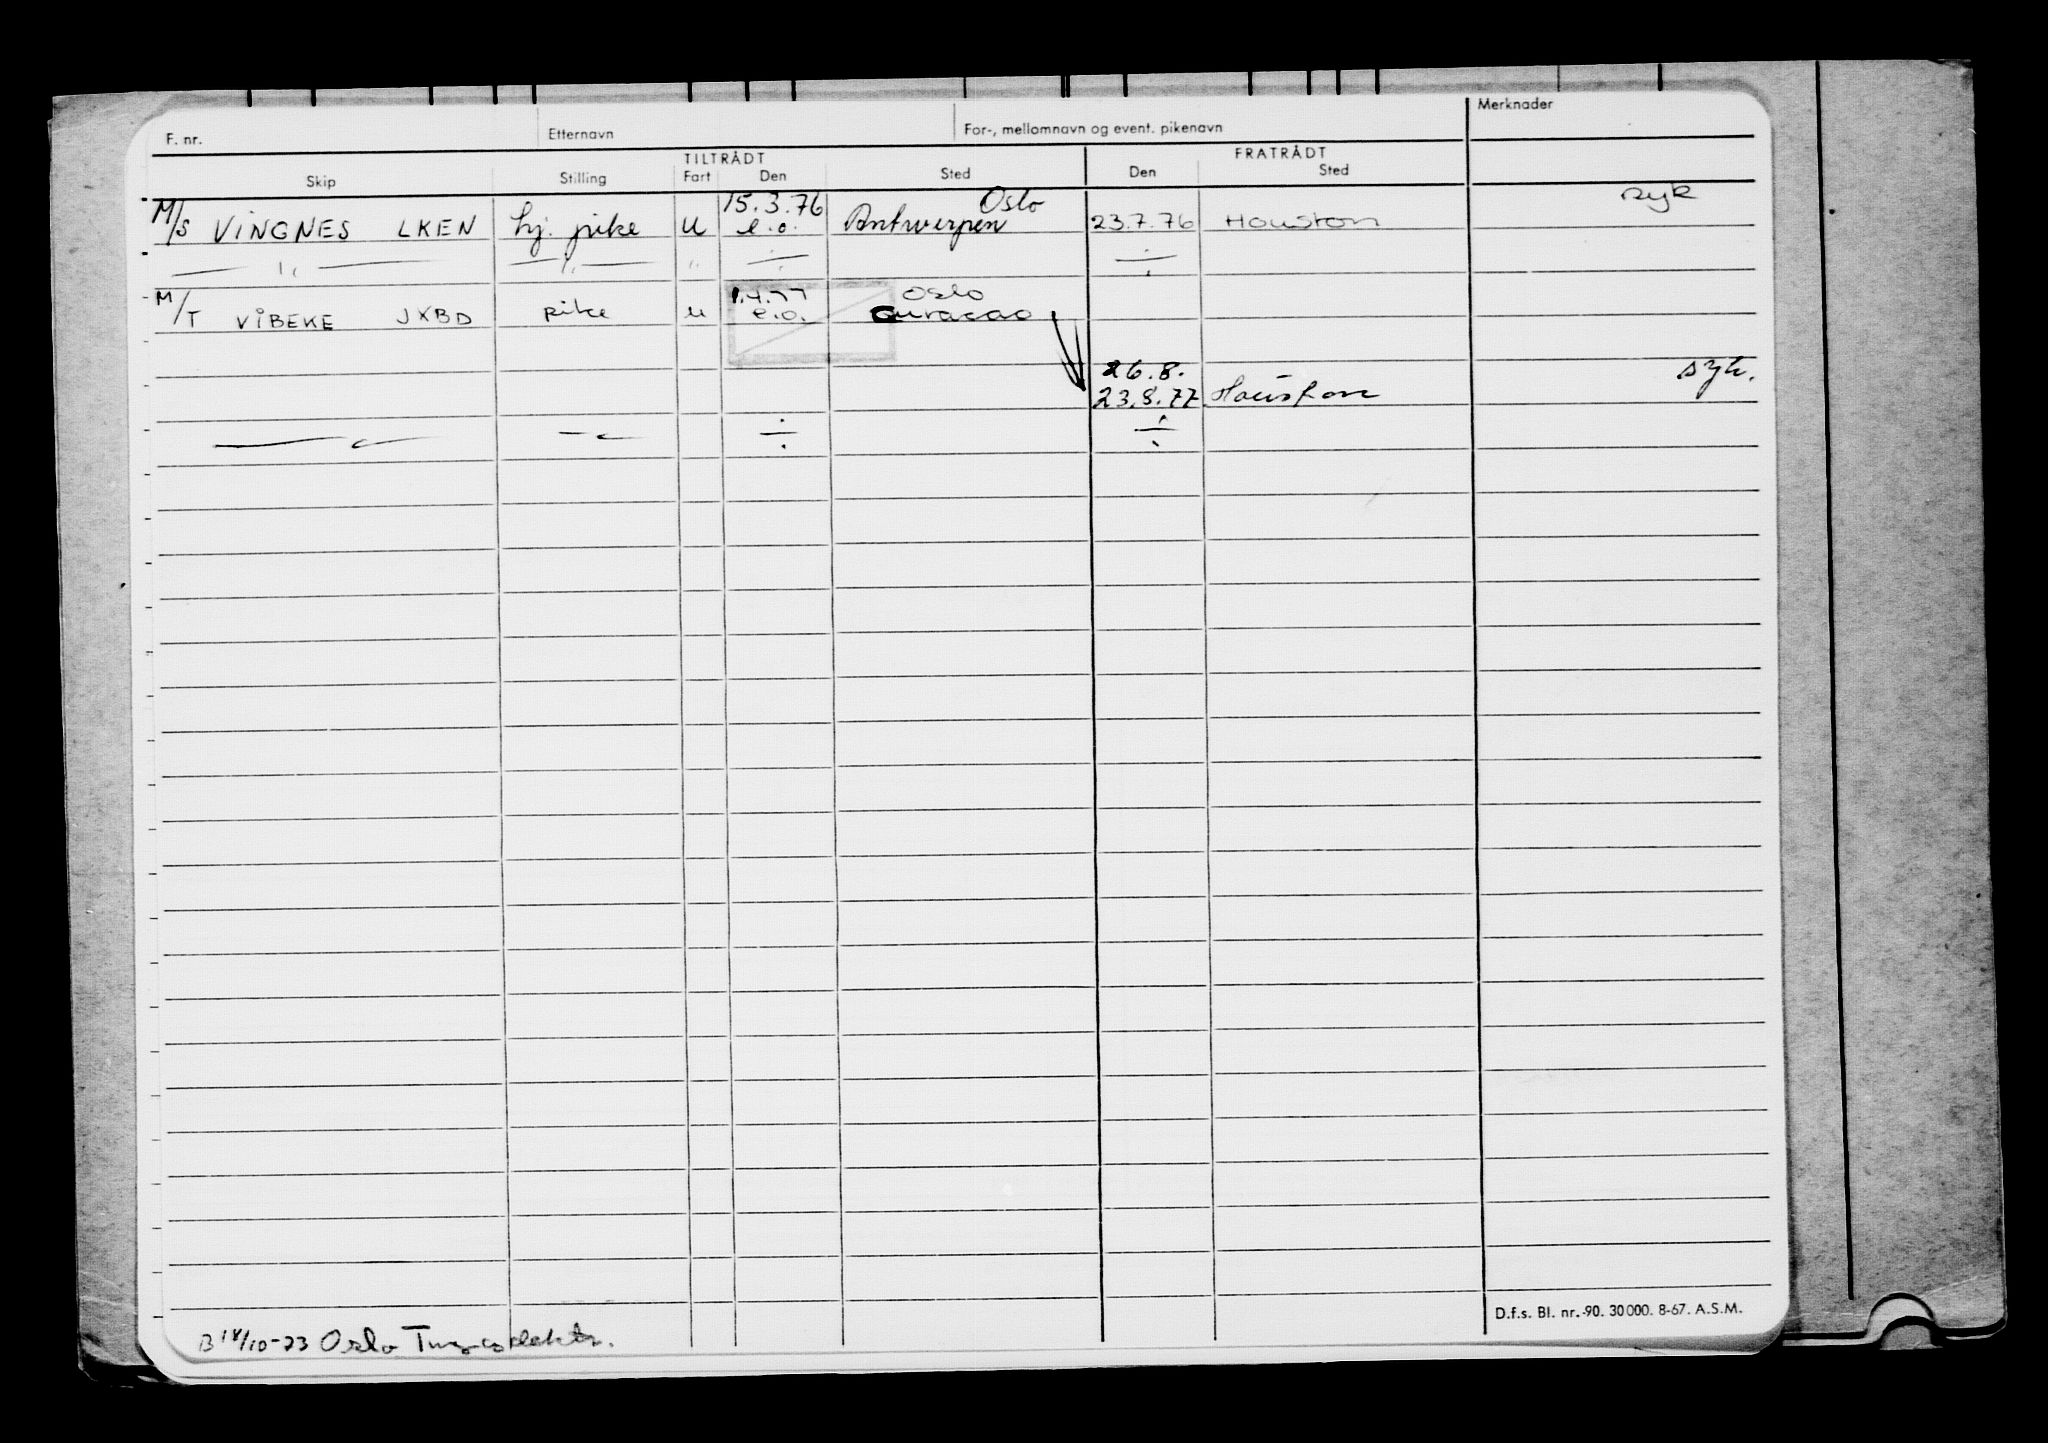 F. nr. Etternavn For-, mellomnavn og event. pikenavn Merknader
TILTRÅDT FRATRÅDT
Skip Stilling Fart Den Sted Den Sted
15.3.76 Oslo syk
M/S VINGNES LKEN hj. pike U e.o. Antwerpen 23.7.76 Houston
— " — — " — " ÷ ÷
1.4.77 Oslo
M/T VIBEKE JXBD pike u e.o. Curacao
26.8. syk.
23.8.77 Houston
— " — — " — ÷ ÷
D.f.s. Bl. nr.-90. 30000. 8-67. A.S.M.
B 18/10-73 Oslo